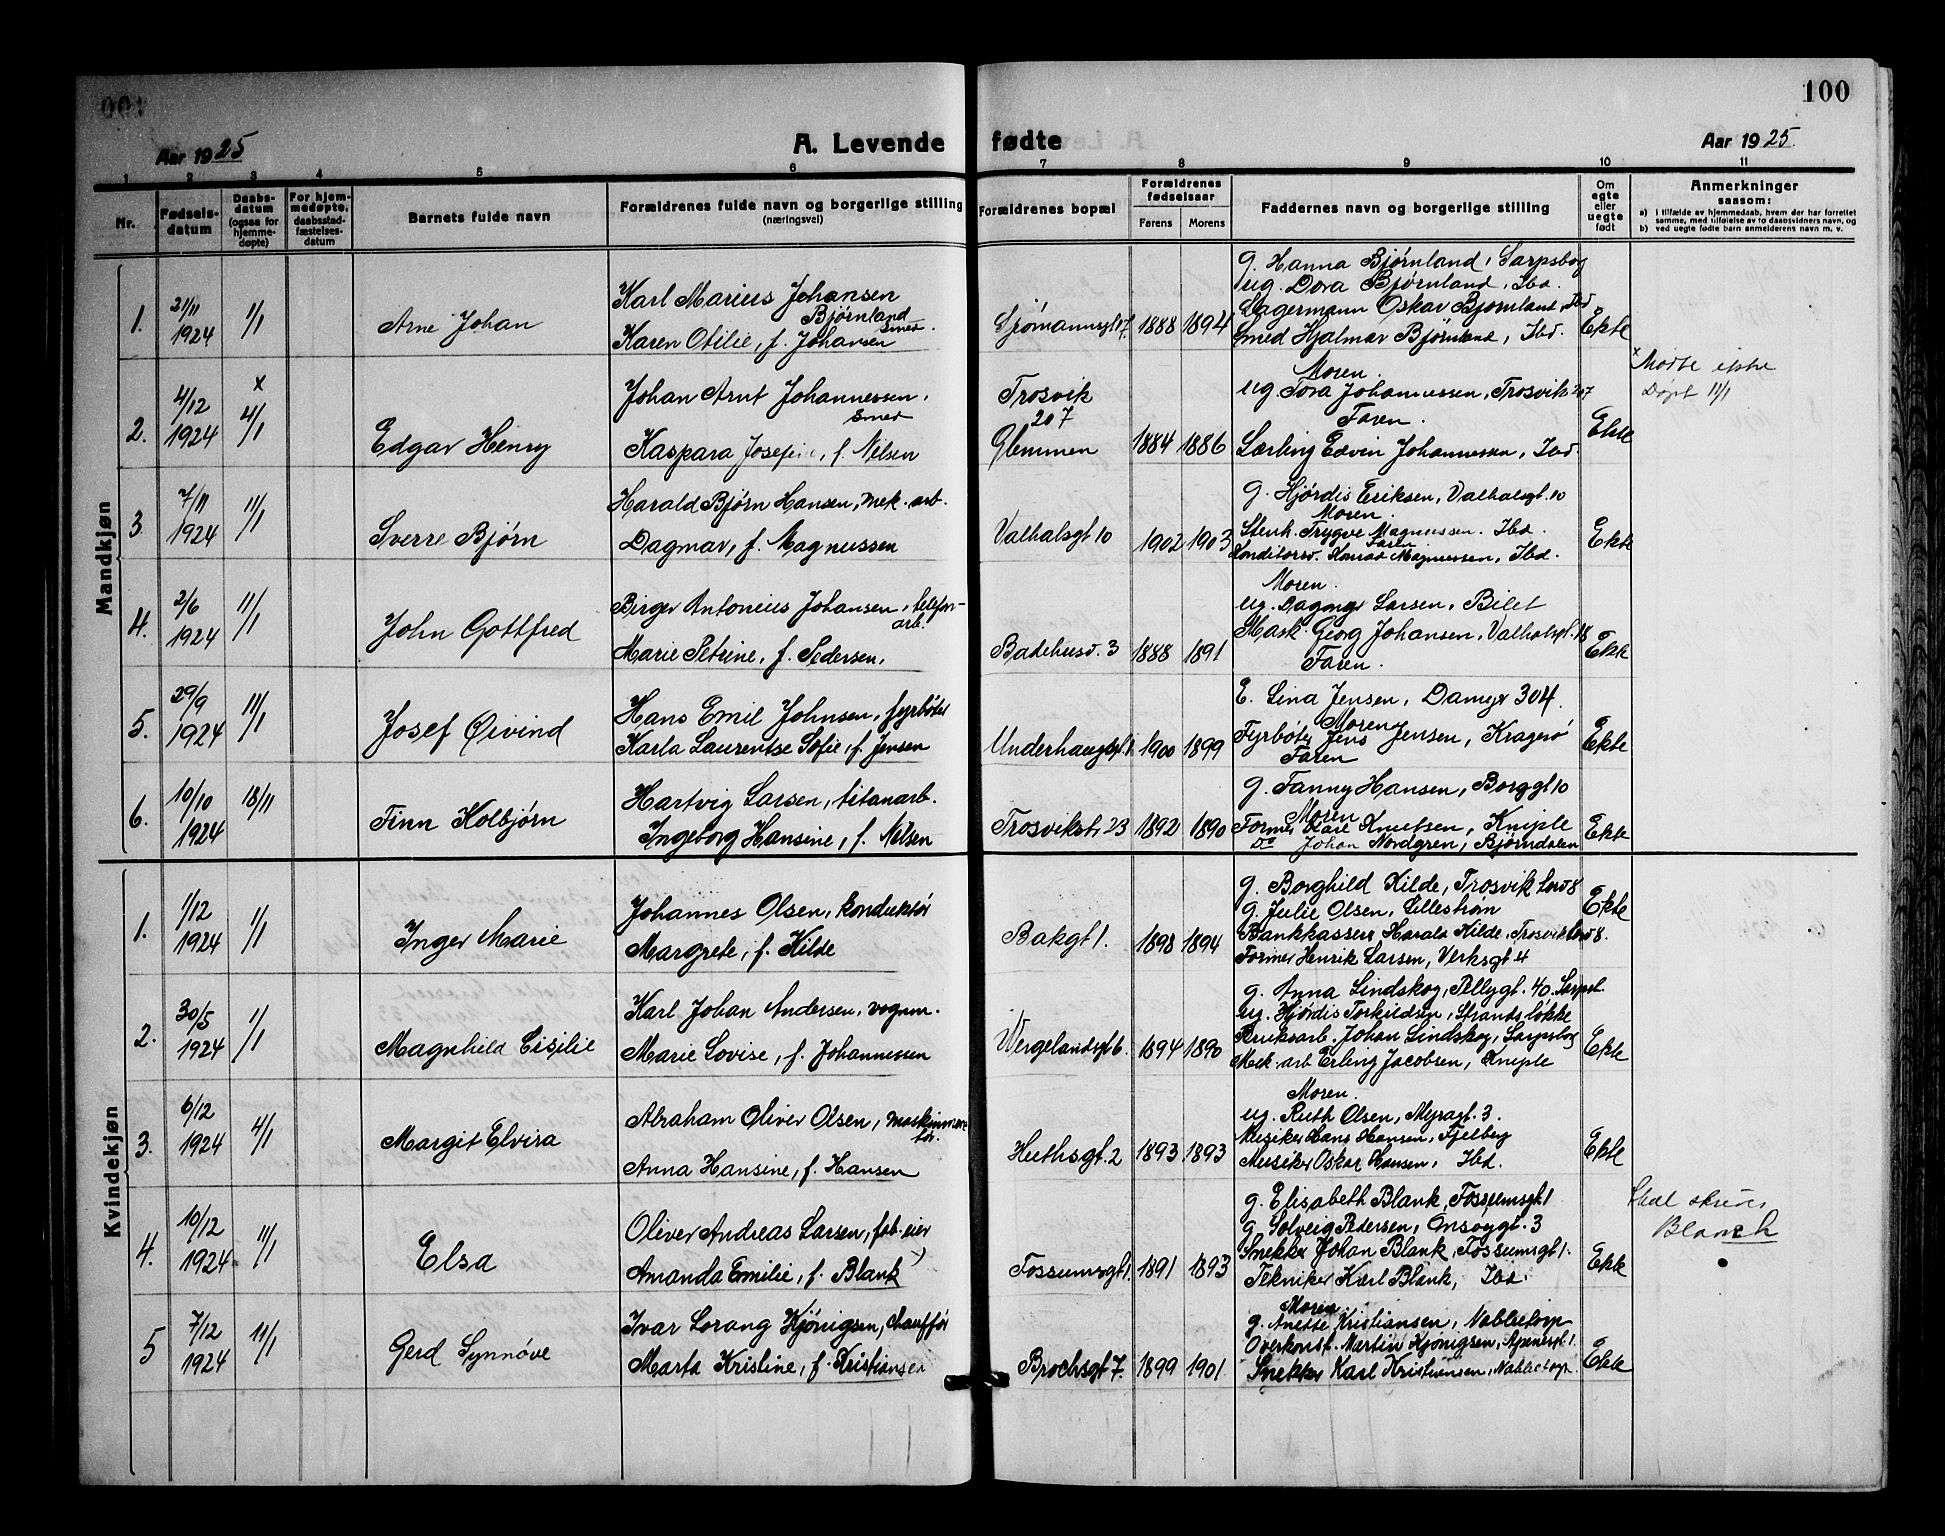 100
Aar 1925
A. Levende fødte
Aar 1925.
1 2 3 4 5 6 7 8 9 10 11
Nr.
Fødselsdatum
Daabsdatum (ogsaa for hjemmedøpte)
For hjemmedøpte, daabsstadfæstelsesdatum
Barnets fulde navn
Forældrenes fulde navn og borgerlige stilling (næringsvei)
Forældrenes bopæl
Forældrenes fødselsaar
Farens Morens
Faddernes navn og borgerlige stilling
Om egte eller uegte født
Anmerkninger saasom:
a) i tilfælde av hjemmedaab, hvem der har forrettet samme, med tilføielse av to daabsvidners navn, og
b) ved uegte fødte barn anmelderens navn m. v.
Mandkjøn
1. 21/11 1924 1/1 Arne Johan
Karl Marius Johansen Bjørnland smed.
Karen Otilie, f. Johansen
Sjømannsgt 7. 1888 1894
g. Hanna Bjørnland, Sarpsbog
ug. Dora Bjørnland, Ibd.
Lagermann Oskar Bjørnland, Ibd
Smed Hjalmar Bjørnland, Ibd.
Ekte
2. 4/12 1924 x 4/1 Edgar Henry
Johan Arnt Johannessen, smed
Kaspara Josefine, f. Nelsen
Trosvik 207 Glemmen 1884 1886
Moren.
ug. Tora Johannessen, Trosvik 207
Faren.
Lærling Edvin Johannessen, Ibd.
Ekte
x Møtte ikke
Døpt 11/1
3. 7/11 1924 11/1 Sverre Bjørn
Harald Bjørn Hansen, mek. arb.
Dagmar, f. Magnussen
Valhalsgt 10 1902 1903
g. Hjørdis Eriksen, Valhalsgt. 10
Moren.
Stenh. Trygve Magnussen. Ibd.
Faren
Konditorsv. Konrad Magnussen, Ibd.
Ekte
4. 2/6 1924 11/1 John Gottfred
Birger Antonius Johansen, telefonarb.
Marie Petrine, f. Pedersen,
Badehusv. 3 1888 1891
Moren.
ug. Dagmar Larsen, Bilet
Mask. Georg Johansen, Valhalsgt. 18
Faren.
Ekte
5. 29/9 1924 11/1 Josef Øivind
Hans Emil Johnsen, fyrbøter
Karla Laurentse Sofie, f. Jensen
Underhaugsgt. 1900 1899
E. Lina Jensen, Damyr 304.
Moren
Fyrbøter Jens Jensen, Kragerø
Faren
Ekte
6. 10/10 1924 18/11 Finn Kolbjørn
Hartvig Larsen, titanarb.
Ingeborg Hansine, f. Nelsen
Trosvikstr 23 1892 1890
g. Fanny Hansen, Borggt 10
Moren
Former Karl Knutsen, Kniple
Do Johan Nordgren, Bjørndalen
Ekte
Kvindekjøn
1. 1/12 1924 1/1 Inger Marie
Johannes Olsen, konduktør
Margrete, f. Kilde
Bakgt 1. 1898 1894
g. Borghild Kilde, Trosvik
g. Julie Olsen, Lillestrøm
Bankkasserer Harald Kilde, Trosvik
Former Henrik Larsen, Verksgt 4
Ekte
2. 30/5 1924 1/1 Magnhild Cisilie
Karl Johan Andersen, vognm.
Marie Lovise, f. Johannessen
Wergelandsgt 6. 1894 1890
g. Anna Lindskog, Pellygt. 40. Sarpsb.
ug. Hjørdis Torkildsen, Strandsløkke
Bruksarb. Johan Lindskog, Sarpsbog
Mek. arb Erling Jacobsen, Kniple
Ekte
3. 6/12 1924 4/1 Margit Elvira
Abraham Oliver Olsen,
Anna Hansine, f. Hansen
Huthsgt. 2 1893 1893
Moren.
ug. Ruth Olsen, Myragt. 3.
Musiker Hans Hansen, Fjelberg
Musiker Oskar Hansen, Ibd.
Ekte
4. 10/12 1924 11/1 Elsa
Oliver Andreas Larsen, fab. eier
Amanda Emilie, f. Blank x)
Fossumsgt 1. 1891 1893
g. Elisabeth Blank, Fossumsgt 1
g. Solveig Pedersen, Onsøygt. 3
Snekker Johan Blank, Fossumsgt 1.
Tekniker Karl Blank, Ibd.
Ekte
Skal skrives
Blanch
5 7/12 1924 11/1 Gerd Synnøve
Ivar Lorang Kjønigsen, Chauffør
Marta Kristine, f. Kristiansen
Brochsgt 7. 1899 1901
Moren
g. Anette Kristiansen, Nabbetorp
Overkonst. Martin Kjønigsen, Apenesgt 1.
Snekker Karl Kristiansen, Nabbetorp.
Ekte